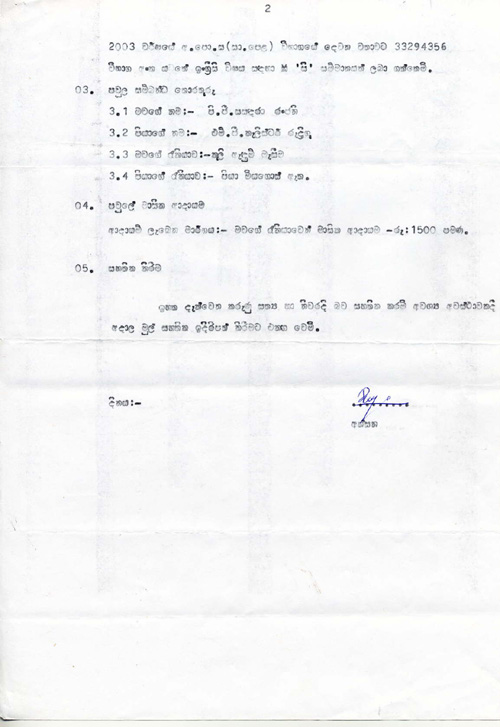 2
2003 වර්ෂයේ අ.පො.ස(සා.පෙළ) විභාගයේ දෙවන වතාවට 33294356
විභාග අංක යටතේ ඉංග්‍රීසි විෂය සඳහා 'සී' සම්මානයක් ලබා ගත්තෙමි.
03. පවුල සම්බන්ධ තොරතුරු
3.1 මවගේ නම:- පී.වී.
3.2 පියාගේ නම:- එම්.පී.කැලිස්ටස් රුද්‍රිගු
3.3 මවගේ රැකියාව:-කුලී ඇඳුම් මැසීම
3.4 පියාගේ රැකියාව:- පියා මියගොස් ඇත.
04. පවුලේ මාසික ආදායම
ආදායම් ලැබෙන මාර්ගය:- මවගේ රැකියාවෙන් මාසික ආදායම -රු:1500 පමණ.
05. සහතික කිරීම
ඉහත දැක්වෙන කරුණු සත්‍ය හා නිවරදි බව සහතික කරමි අවශ්‍ය අවස්ථාවකදී
අදාල මුල් සහතික ඉදිරිපත් කිරීමට එකඟ වෙමි.
දිනය:-
අත්සන